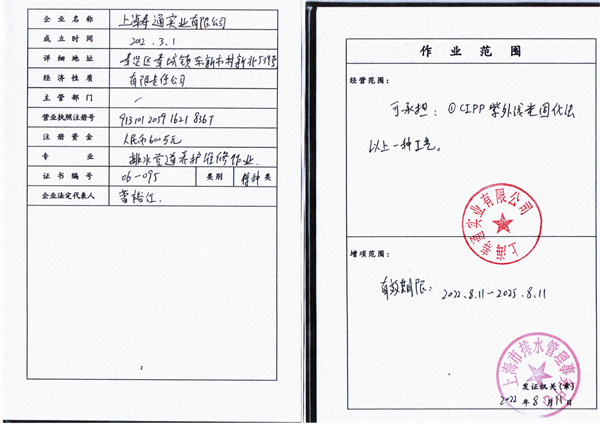 企业名称 上海 通实业有限公司
成立时间 2012.3.1
详细地址 嘉定区 城镇东新市村新北539号
经济性质 有限责任公司
主管部门 /
营业执照注册号 91310120591621836T
注册资金 人民币600万元
专业 排水管道养护维修作业
证书编号 06-095 类别 特种类
企业法定代表人 江.
2
作业范围
经营范围:
可承担: ①CIPP紫外线光固化法
以上一种工艺。
上海 通实业有限公司
增项范围:
有效期限: 2022.8.11-2025.8.11
上海市排水管理事务中心
发证机关(章)
2022年8月11日